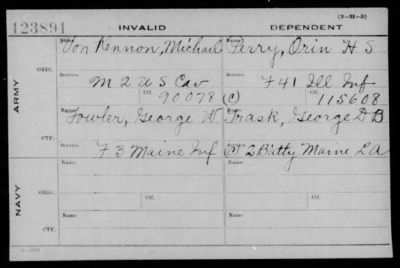 (3—21—5)
123891
INVALID
DEPENDENT
Name
Name
Von Kennon, Michael
Perry, Orin H S
ARMY
ORIG.
Service
Service
M 2 U S Cav
F 41 Ill Inf
Ctf.
Ctf.
90078 (C)
115608
Name
Name
Fowler, George W
Trask, George D B
CTF.
Service
Service
F 3 Maine Inf (C)
2 Batty Maine L A
NAVY
ORIG.
Name
Ctf.
Name
Ctf.
CTF.
Name
Name